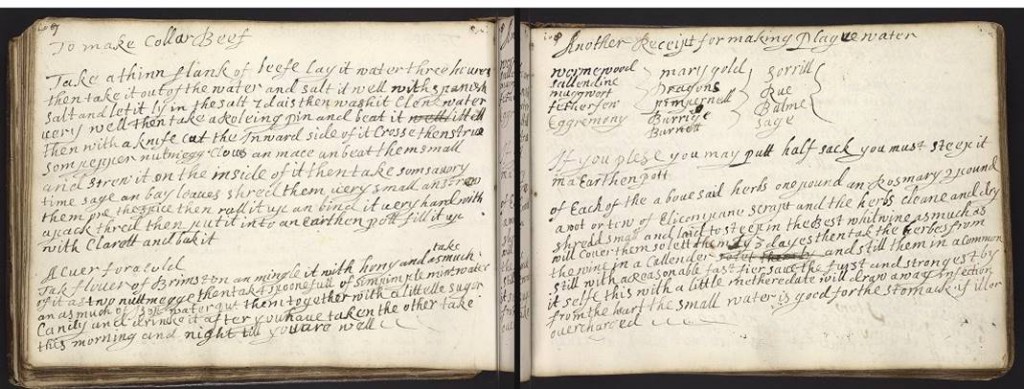 To make Collar Beef
Take a thinn flank of beefe lay it water three houers
then take it out of the water and salt it well with spanish
salt and let it ly in the salt 7 dais then wash it Clene water
very well then take a roleing pin and beat it well
then with a knife cut the Inward side of it Crosse then strue
som pepper nutmegg Clous an mace an beat them small
and strew it on the inside of it then take som savory
time sage an bay leaves shred them very small an strew
them the spice then rull it up an bind it very hard with
apack thred then put it into an Earthen pott fill it up
with Clarett and bak it
A Cuer for a cold
take
Tak flouer of Brimston an mingle it with hony and as much
of it as two nuttmegge then take 3 spoone full of simpple mintwater
an as much of water put them together with a littelle suger
Candy and drinke it after you haue taken the other take
this morning and night till you are well
Another Receipt for making Plague water
wormewood
sallendine
muggwort
fetherfew
Eggremony
mary gold
Dragons
pimpernell
Burrige
Burnett
sorrill
Rue
Balme
sage
If you plese you may putt half sack you must steep it
in a Earthen pott
of Each of the a boue said herbs one pound an Rosmary 2 pound
a root or tow of Elicompane scrapt and the herbs cleane and dry
shredd small and laid to steep in the Best whit wine as much as
will couer them so lett them ly 3 dayes then tak the herbes from
the wine in a Callender and still them in a common
still with a Reasonable fast fier save the furst and strongest by
it selfe this with a little metheredate will draw away infection
from the heart the small water is good for the stomack if ill or
overcharged